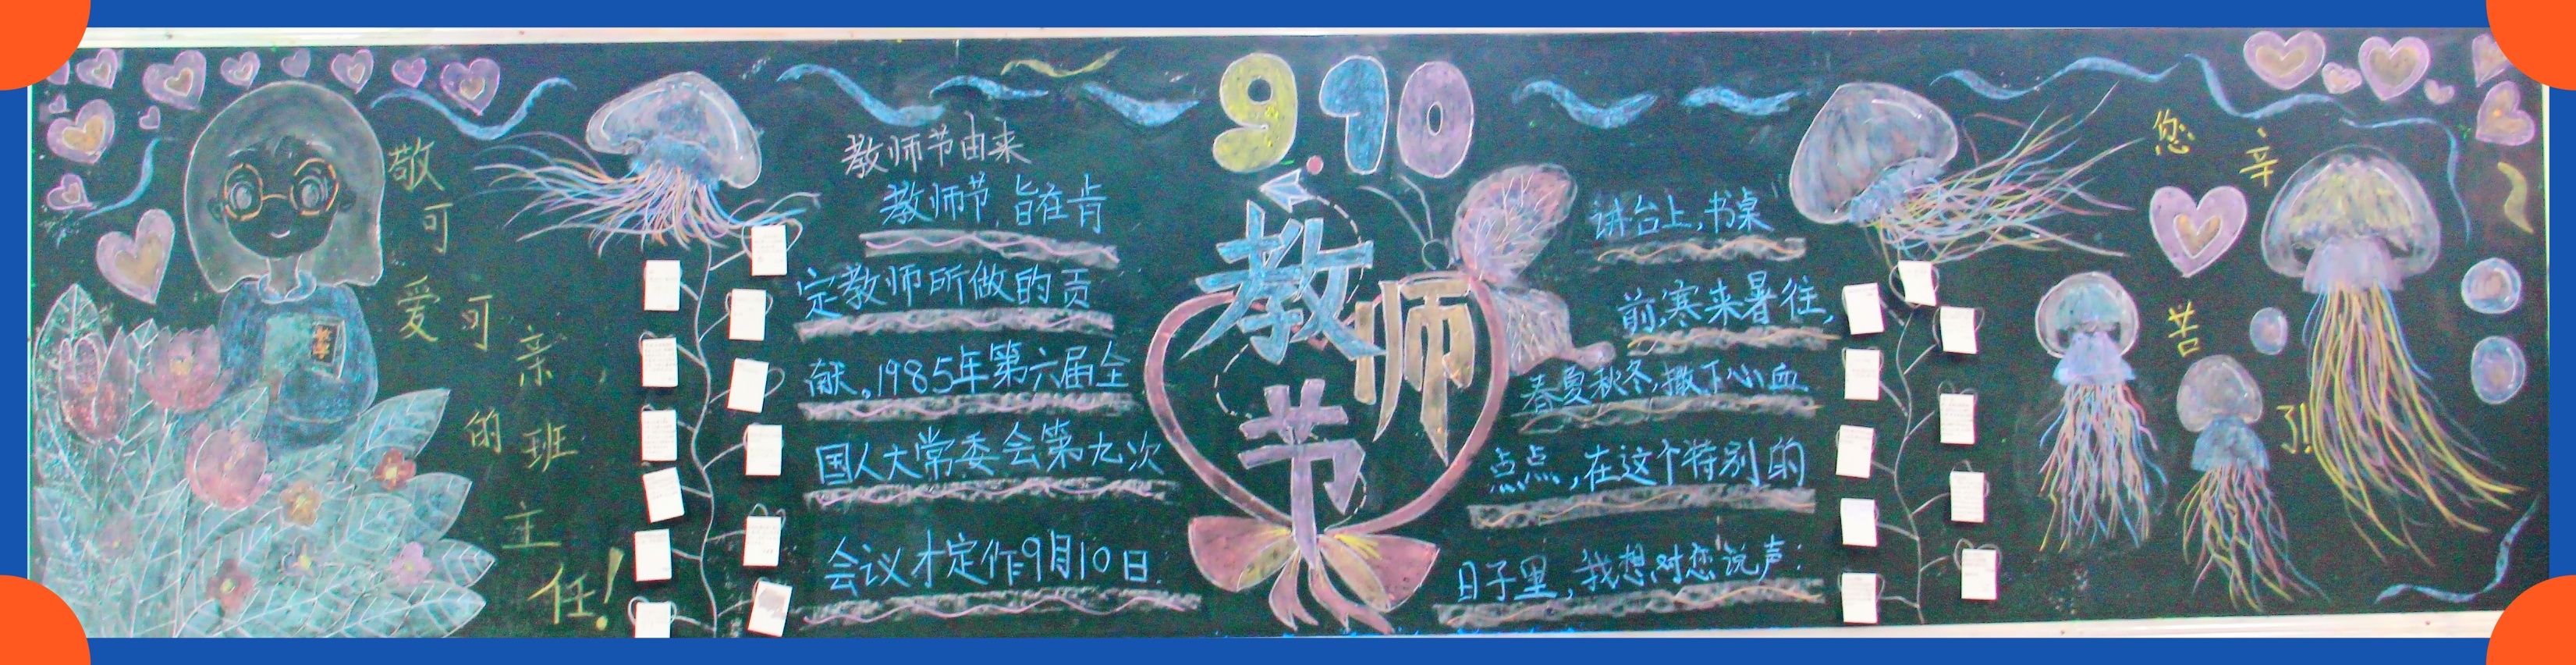 敬可爱可亲的班主任!
教师节由来
教师节,旨在肯
定教师所做的贡
献。1985年第六届全
国人大常委会第九次
会议才定作9月10日.
9.10
教师节
讲台上,书桌
前,寒来暑往,
春夏秋冬,撒下心血
点点,在这个特别的
日子里,我想对您说声:
您辛苦了!